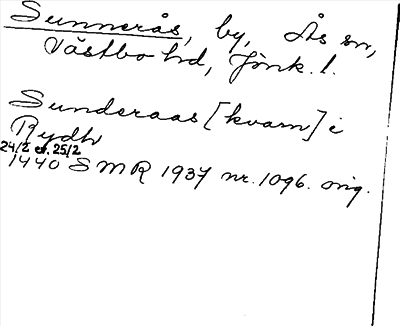 Sunnerås, by, Ås sn,
Västbo hd, Jönk. l.
Sunderaas [kvarn] i
Rydh
24/2 el. 25/2
1440 SMR 1937 nr. 1096. orig.